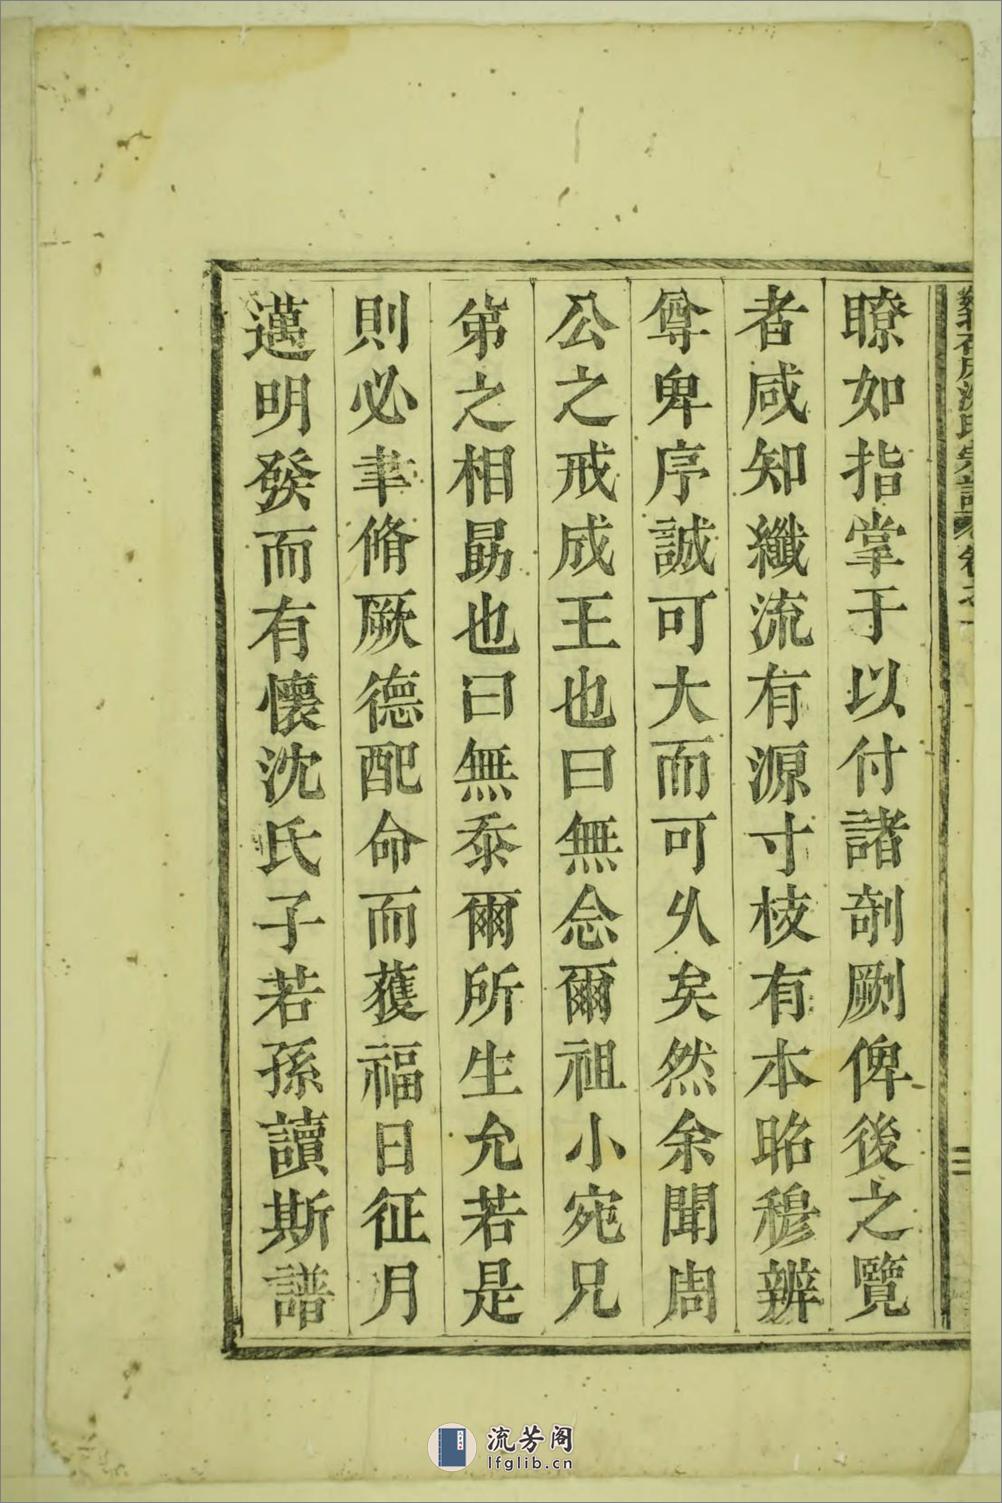 瞭如指掌于以付諸剞劂俾後之覽
者咸知纖流有源寸枝有本昭穆辨
尊卑序誠可大而可久矣然余聞周
公之戒成王也曰無念爾祖小宛兄
弟之相勗也曰無忝爾所生允若是
則必聿脩厥德配命而獲福日征月
邁明發而有懷沈氏子若孫讀斯譜
流芳阁
lfglib.cn